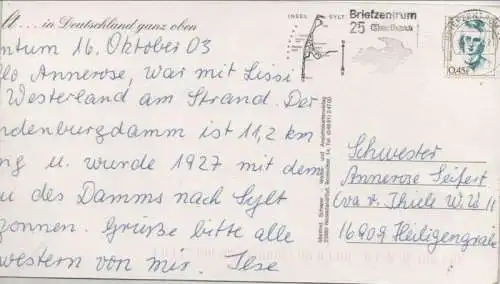 ... in Deutschland ganz oben
ntum 16. Oktober 03
llo Annerose, War mit Lissi
Westerland am Strand. Der
ndenburgdamm ist 11,2 km
ng u. wurde 1927 mit dem
u des Damms nach Sylt
gonnen. Grüße bitte alle
western von mir. Ilse
INSEL SYLT
Briefzentrum
25
0,45€
Schwester
Annerose Seifert
Eva v. Thiele W.U 11
16909 Heiligengrabe